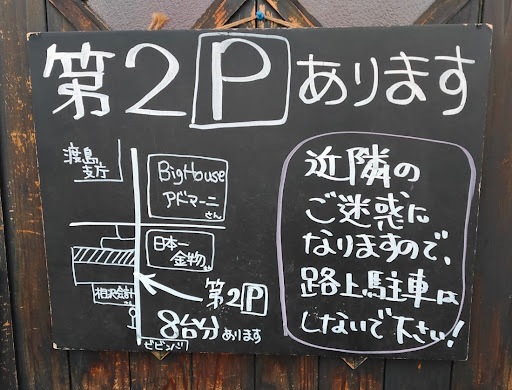 第2Pあります
渡島
支庁
BigHouse
アドマーニ
さん
日本一
金物
相沢会計
第2P
8台分あります
ビビンパ
近隣の
ご迷惑に
なりますので、
路上駐車は
しないで下さい!